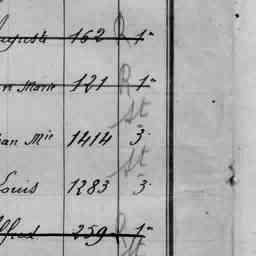 Auguste 162 R 1ª
n Marie 121 R 1ª
St
ean Mie 1414 3.
St
Louis 1283 3.
Alfred 259 R 1ª
St